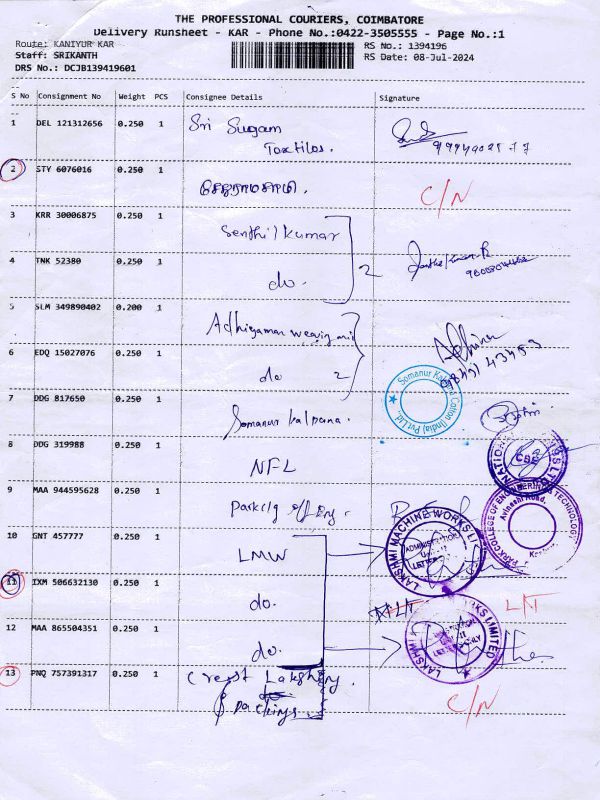 THE PROFESSIONAL COURIERS, COIMBATORE
Delivery Runsheet - KAR - Phone No.:0422-3505555 - Page No.:1
Route: KANIYUR KAR
Staff: SRIKANTH
DRS No.: DCJB139419601
RS No.: 1394196
RS Date: 08-Jul-2024
S No Consignment No Weight PCS Consignee Details Signature
1 DEL 121312656 0.250 1 Sri Sugam
Textiles.
2 STY 6076016 0.250 1 C/N
3 KRR 30006875 0.250 1 Senthil kumar
4 TNK 52380 0.250 1 do. 2
5 SLM 349890402 0.200 1 Adhiyaman weaving
6 EDQ 15027076 0.250 1 do 2
7 DDG 817650 0.250 1 Somanur kalpana.
Somanur Kalpana Cotton (India) Pvt Ltd.
8 DDG 319988 0.250 1 NFL
9 MAA 944595628 0.250 1 Park clg of Eng.
PARK COLLEGE OF ENGINEERING & TECHNOLOGY
Avinashi Road,
10 GNT 457777 0.250 1 LMW
LAKSHMI MACHINE WORKS LIMITED
ADMINISTRATION
11 IXM 506632130 0.250 1 do.
12 MAA 865504351 0.250 1 do.
13 PNQ 757391317 0.250 1 Crest Lakshmy
packings. C/N